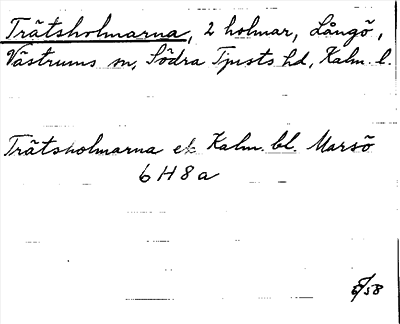 Trätsholmarna, 2 holmar, Långö,
Västrums sn, Södra Tjusts hd, Kalm. l.
Trätsholmarna ek Kalm. bl. Marsö
6 H 8 a